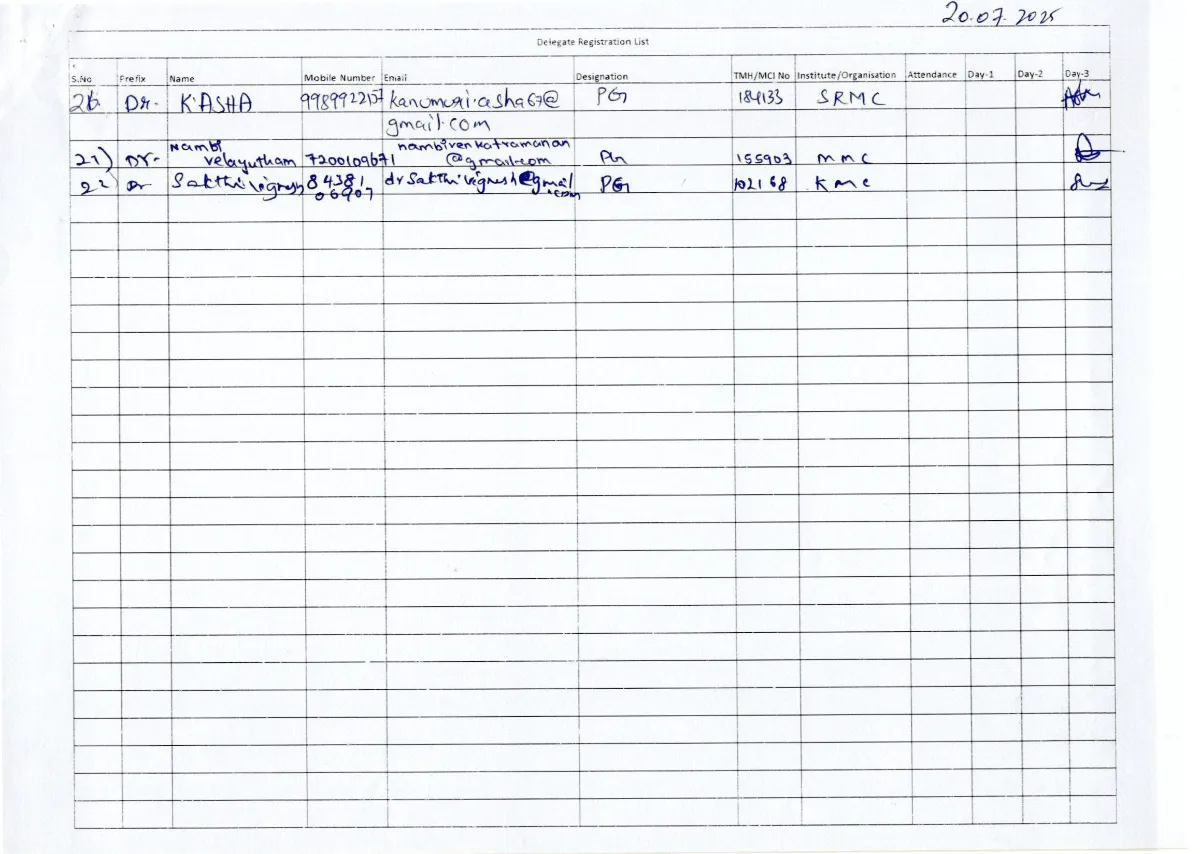 20.07.2025
Delegate Registration List
S.No Prefix Name Mobile Number Email Designation TMH/MCI No Institute/Organisation Attendance Day-1 Day-2 Day-3
20 Dr. K.ASHA 9989922157 kanumuri.asha67@ PG 184133 SRMC
gmail.com
Nambi nambivenkatramanan
21) Dr. velayutham 7200109671 @gmail.com PG 155903 MMC
22) Dr Sakthi Vignesh 84381 drSakthivignesh@gmail PG 102168 KMC
06907 .com